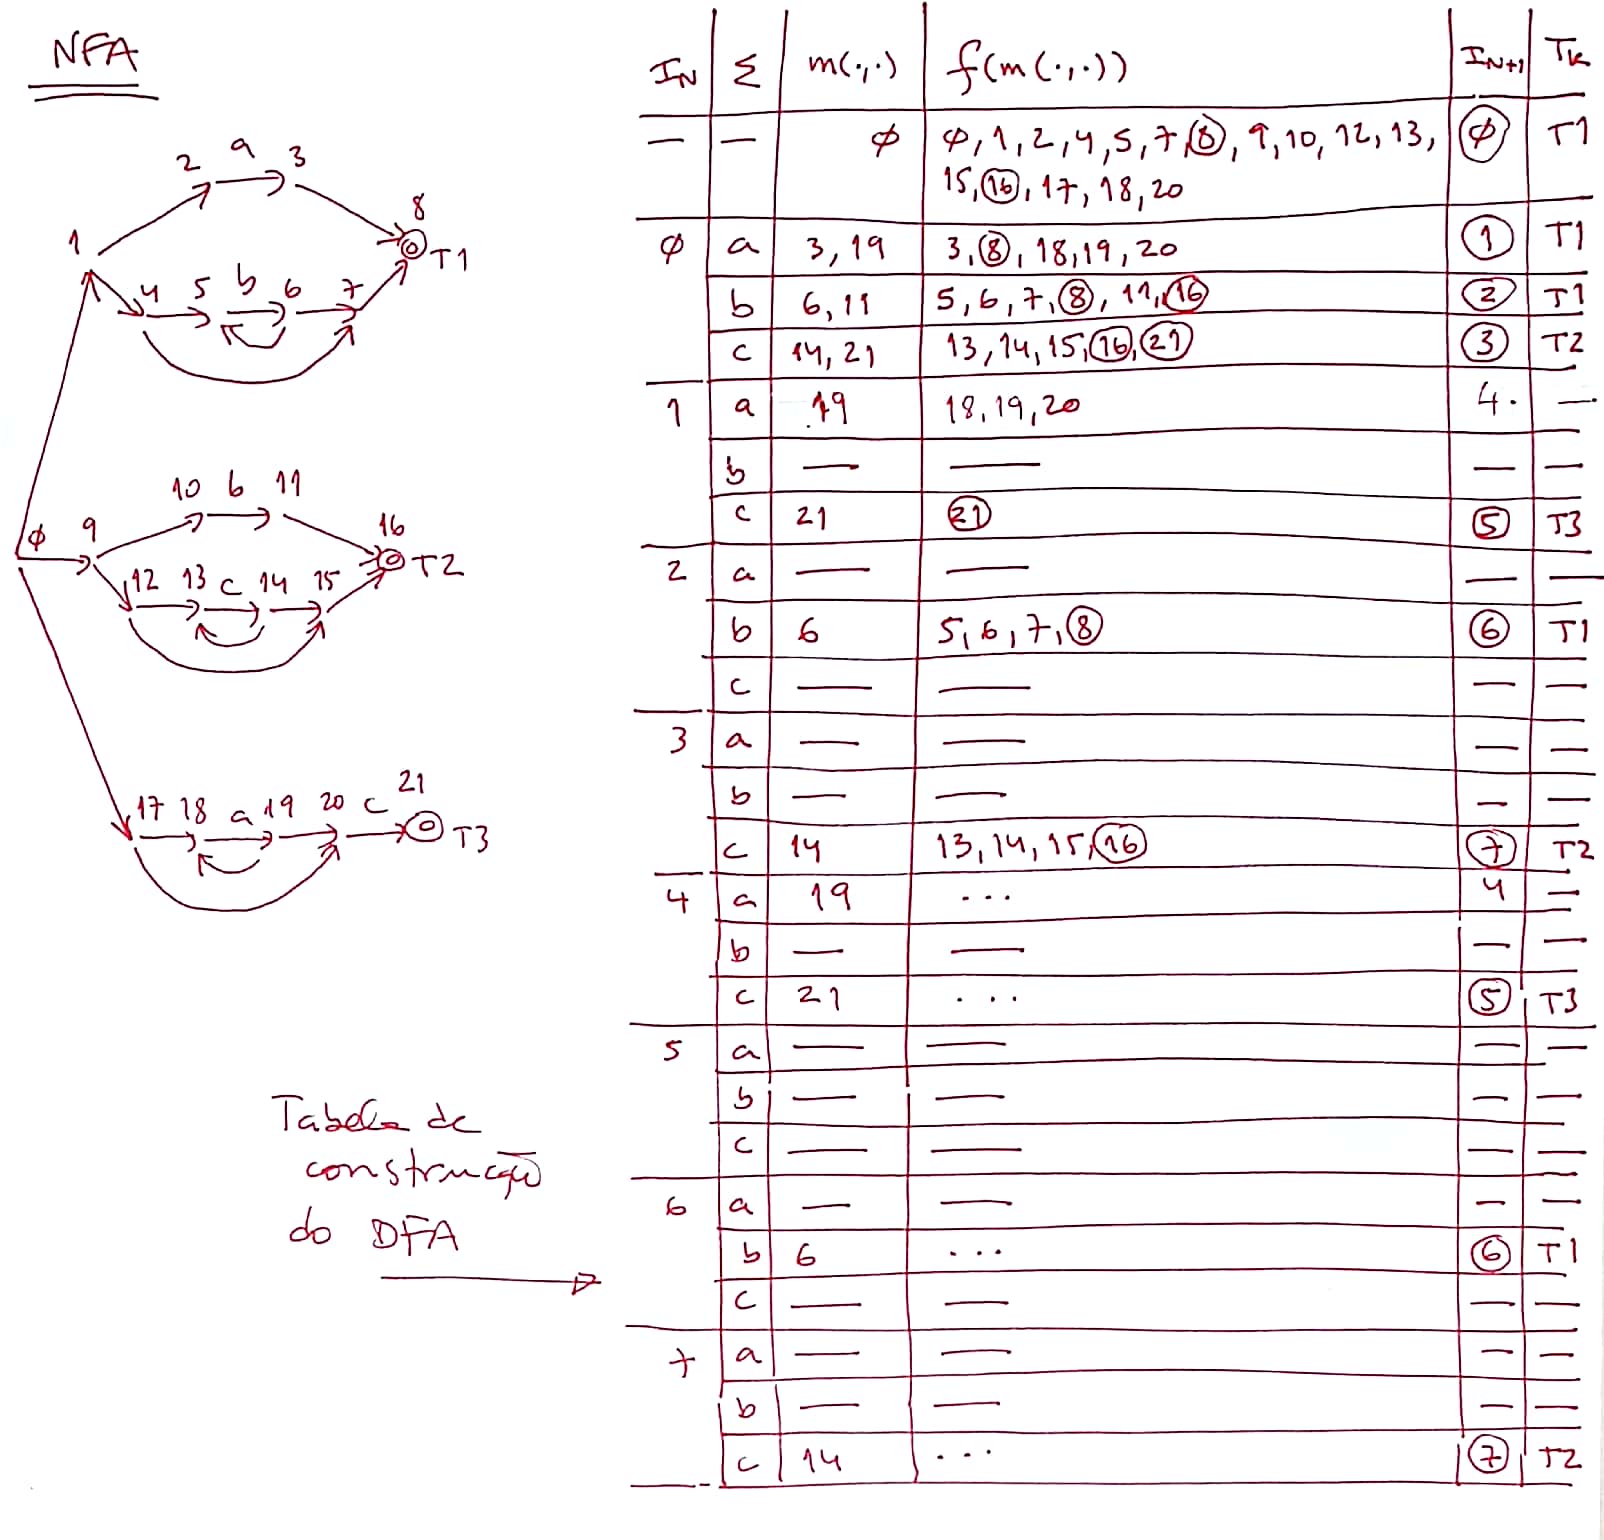 NFA
2 a 3
8
1
T1
4 5 b 6 7
10 b 11
16
φ 9
T2
12 13 c 14 15
21
17 18 a 19 20 c
T3
Tabela de
construção
do DFA
IN Σ m(·,·) f(m(·,·)) IN+1 Tk
— — φ φ,1,2,4,5,7,8,9,10,12,13, φ T1
15,16,17,18,20
φ a 3,19 3,8,18,19,20 1 T1
b 6,11 5,6,7,8,11,16 2 T1
c 14,21 13,14,15,16,21 3 T2
1 a 19 18,19,20 4. —
b — — — —
c 21 21 5 T3
2 a — — — —
b 6 5,6,7,8 6 T1
c — — — —
3 a — — — —
b — — — —
c 14 13,14,15,16 7 T2
4 a 19 ... 4 —
b — — — —
c 21 ... 5 T3
5 a — — — —
b — — — —
c — — — —
6 a — — — —
b 6 ... 6 T1
c — — — —
7 a — — — —
b — — — —
c 14 ... 7 T2